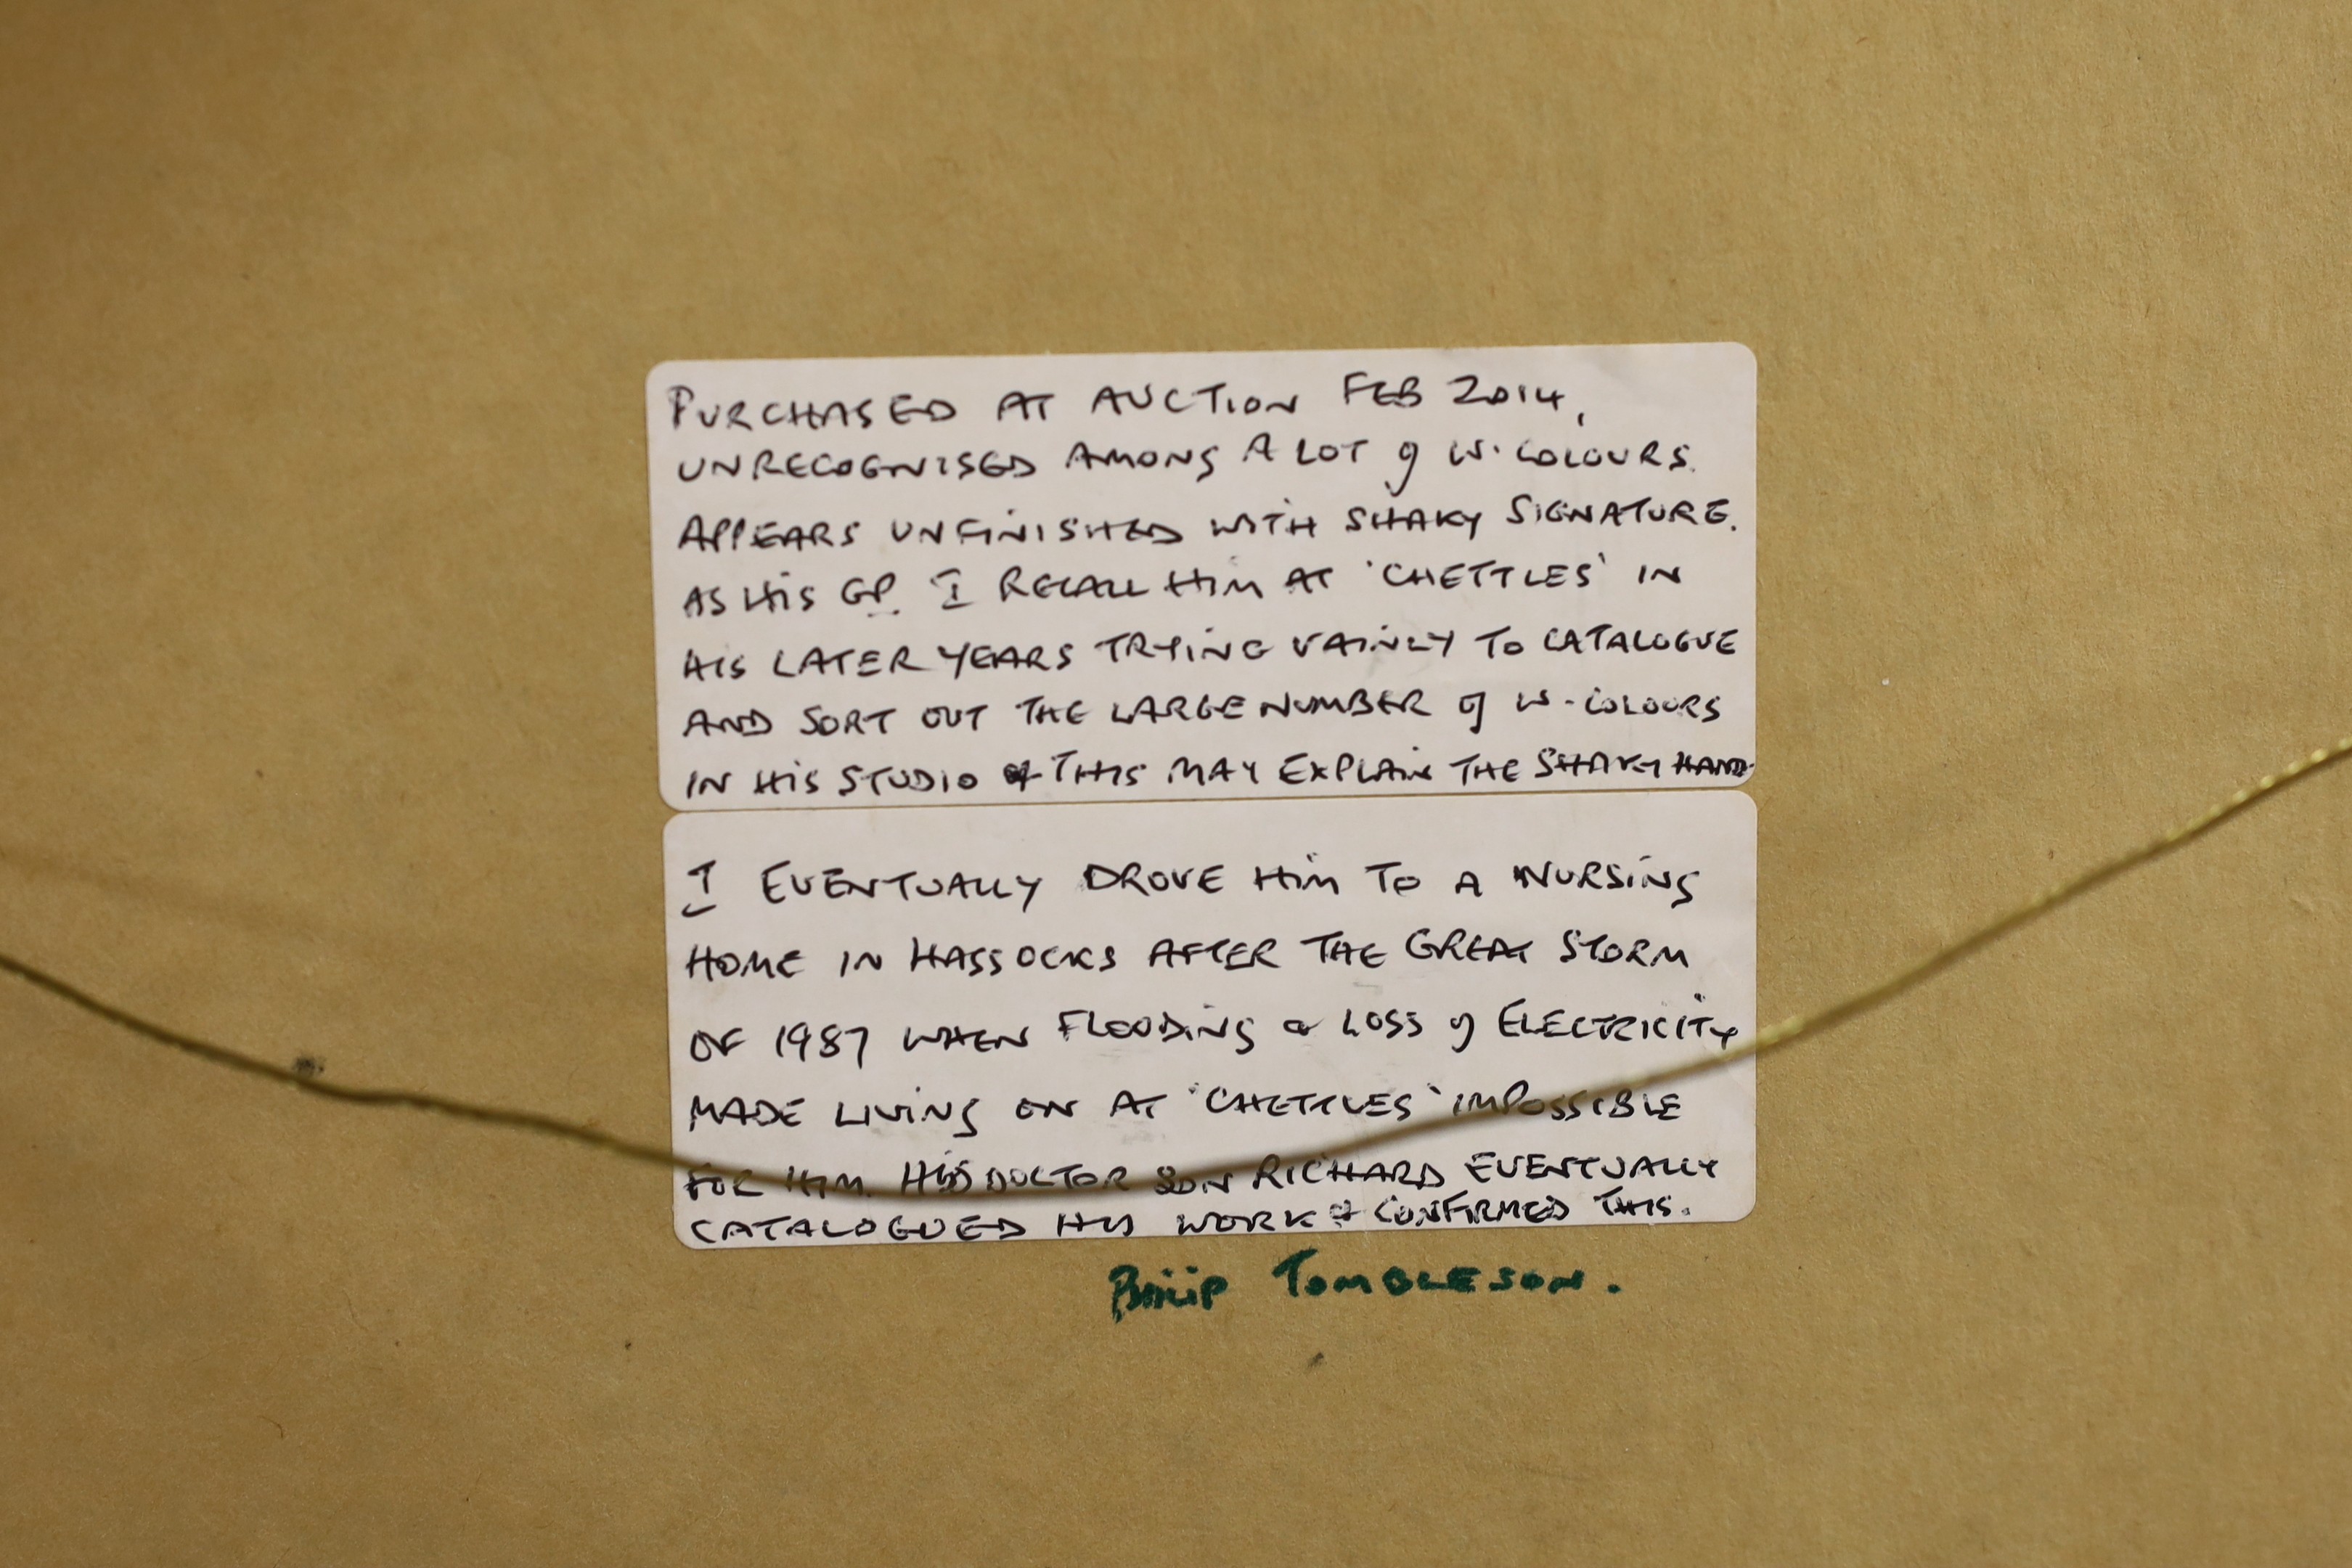 PURCHASED AT AUCTION FEB 2014,
UNRECOGNISED AMONG A LOT of W. COLOURS.
APPEARS UNFINISHED WITH SHAKY SIGNATURE.
AS HIS GP. I RECALL HIM AT 'CHETTLES' IN
HIS LATER YEARS TRYING VAINLY TO CATALOGUE
AND SORT OUT THE LARGE NUMBER of W-COLOURS
IN HIS STUDIO & THIS MAY EXPLAIN THE SHAKY HAND.
I EVENTUALLY DROVE HIM TO A NURSING
HOME IN HASSOCKS AFTER THE GREAT STORM
OF 1987 WHEN FLOODING & LOSS of ELECTRICITY
MADE LIVING ON AT 'CHETTLES' IMPOSSIBLE
FOR HIM. HIS DOCTOR SON RICHARD EVENTUALLY
CATALOGUED HIS WORK & CONFIRMED THIS.
PHILIP TOMBLESON.